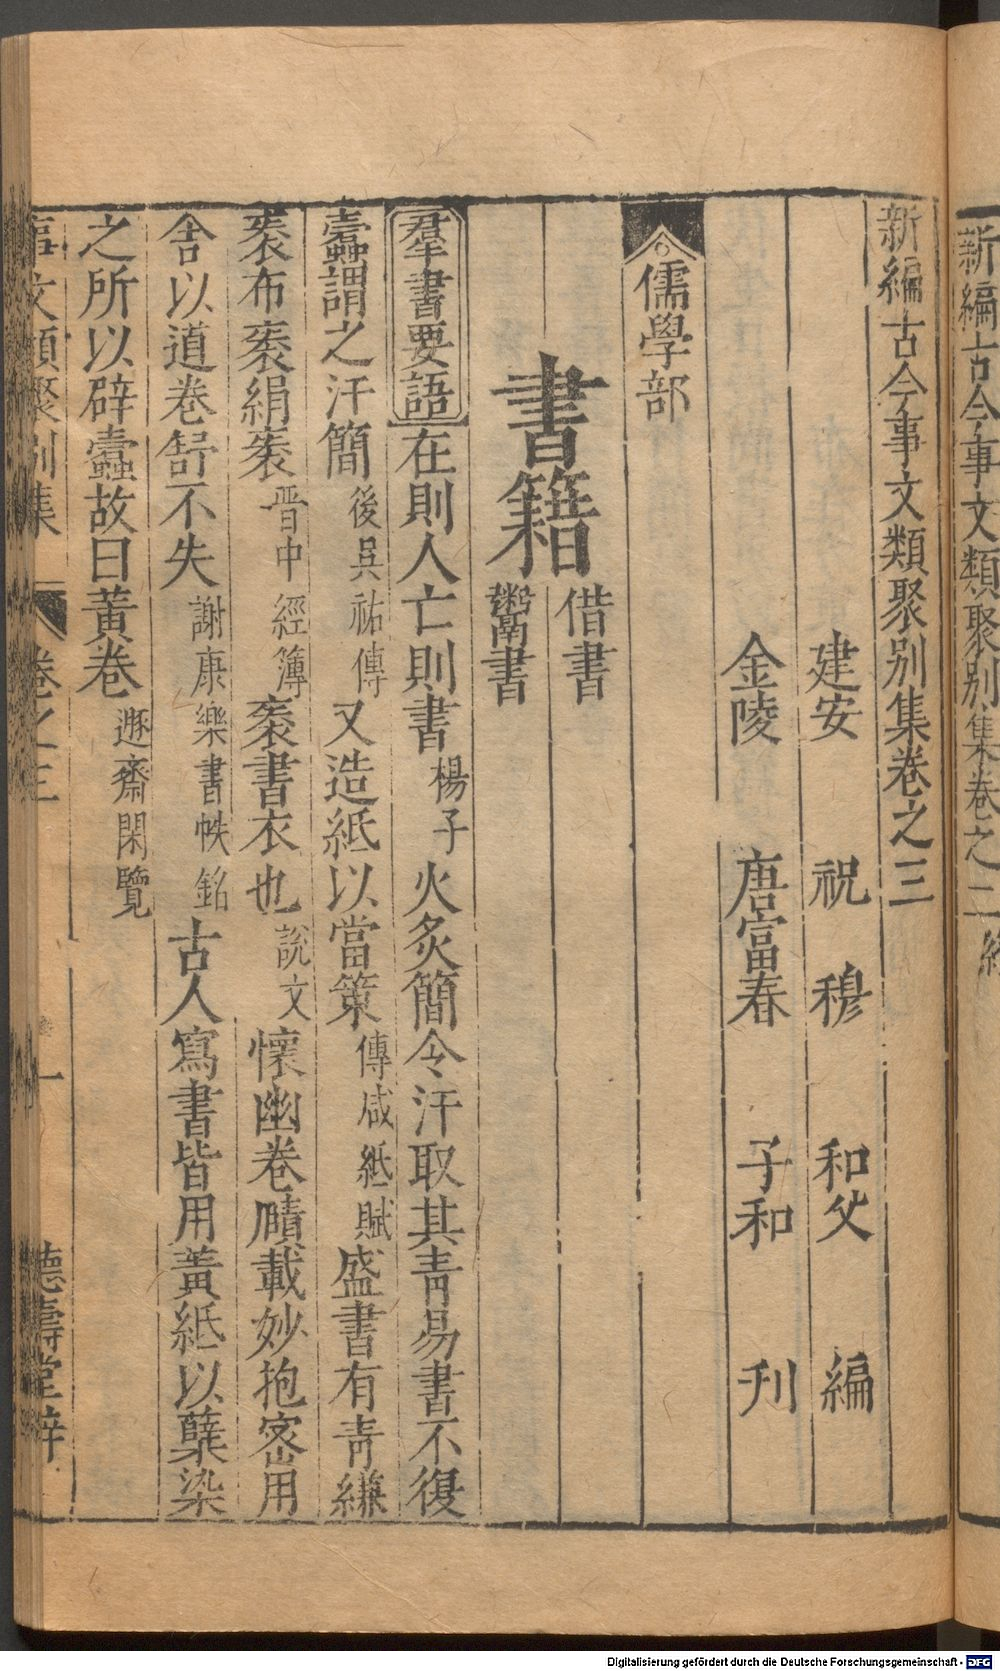 新編古今事文類聚别集卷之三
建安 祝 穆 和父 編
金陵 唐富春 子和 刋
儒學部
書籍
借書
鬻書
羣書要語 在則人亡則書楊子火炙簡令汗取其青易書不復
蠧謂之汗簡後吳祐傳又造紙以當策傅咸紙賦盛書有青縑
袠布袠絹袠晋中經簿袠書衣也說文懷幽卷賾載妙抱密用
舍以道卷舒不失謝康樂書帙銘古人寫書皆用黃紙以蘖染
之所以辟蠧故曰黃卷遯齋閑覽
事文類聚别集 卷之三 一 德壽堂梓
新編古今事文類聚别集卷之二 終
Digitalisierung gefördert durch die Deutsche Forschungsgemeinschaft - DFG